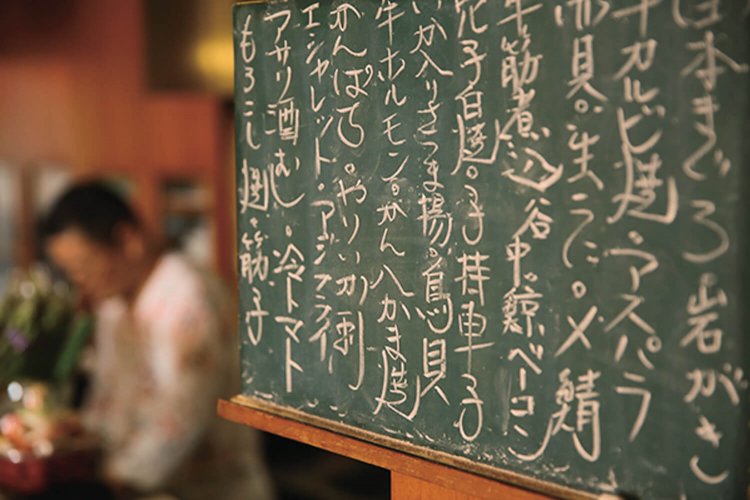 日本まぐろ 岩がき。
牛カルビ焼 アスパラ
赤貝。生うに。〆鯖
牛筋煮込 谷中。鯨ベーコン
穴子白焼。子持車子
いか入りさつま揚。鳥貝
牛ホルモン。かん八かま焼
かんぱち。やりいか刺
エシャレット・アジフライ
アサリ酒むし・冷トマト
もろこし 筋子